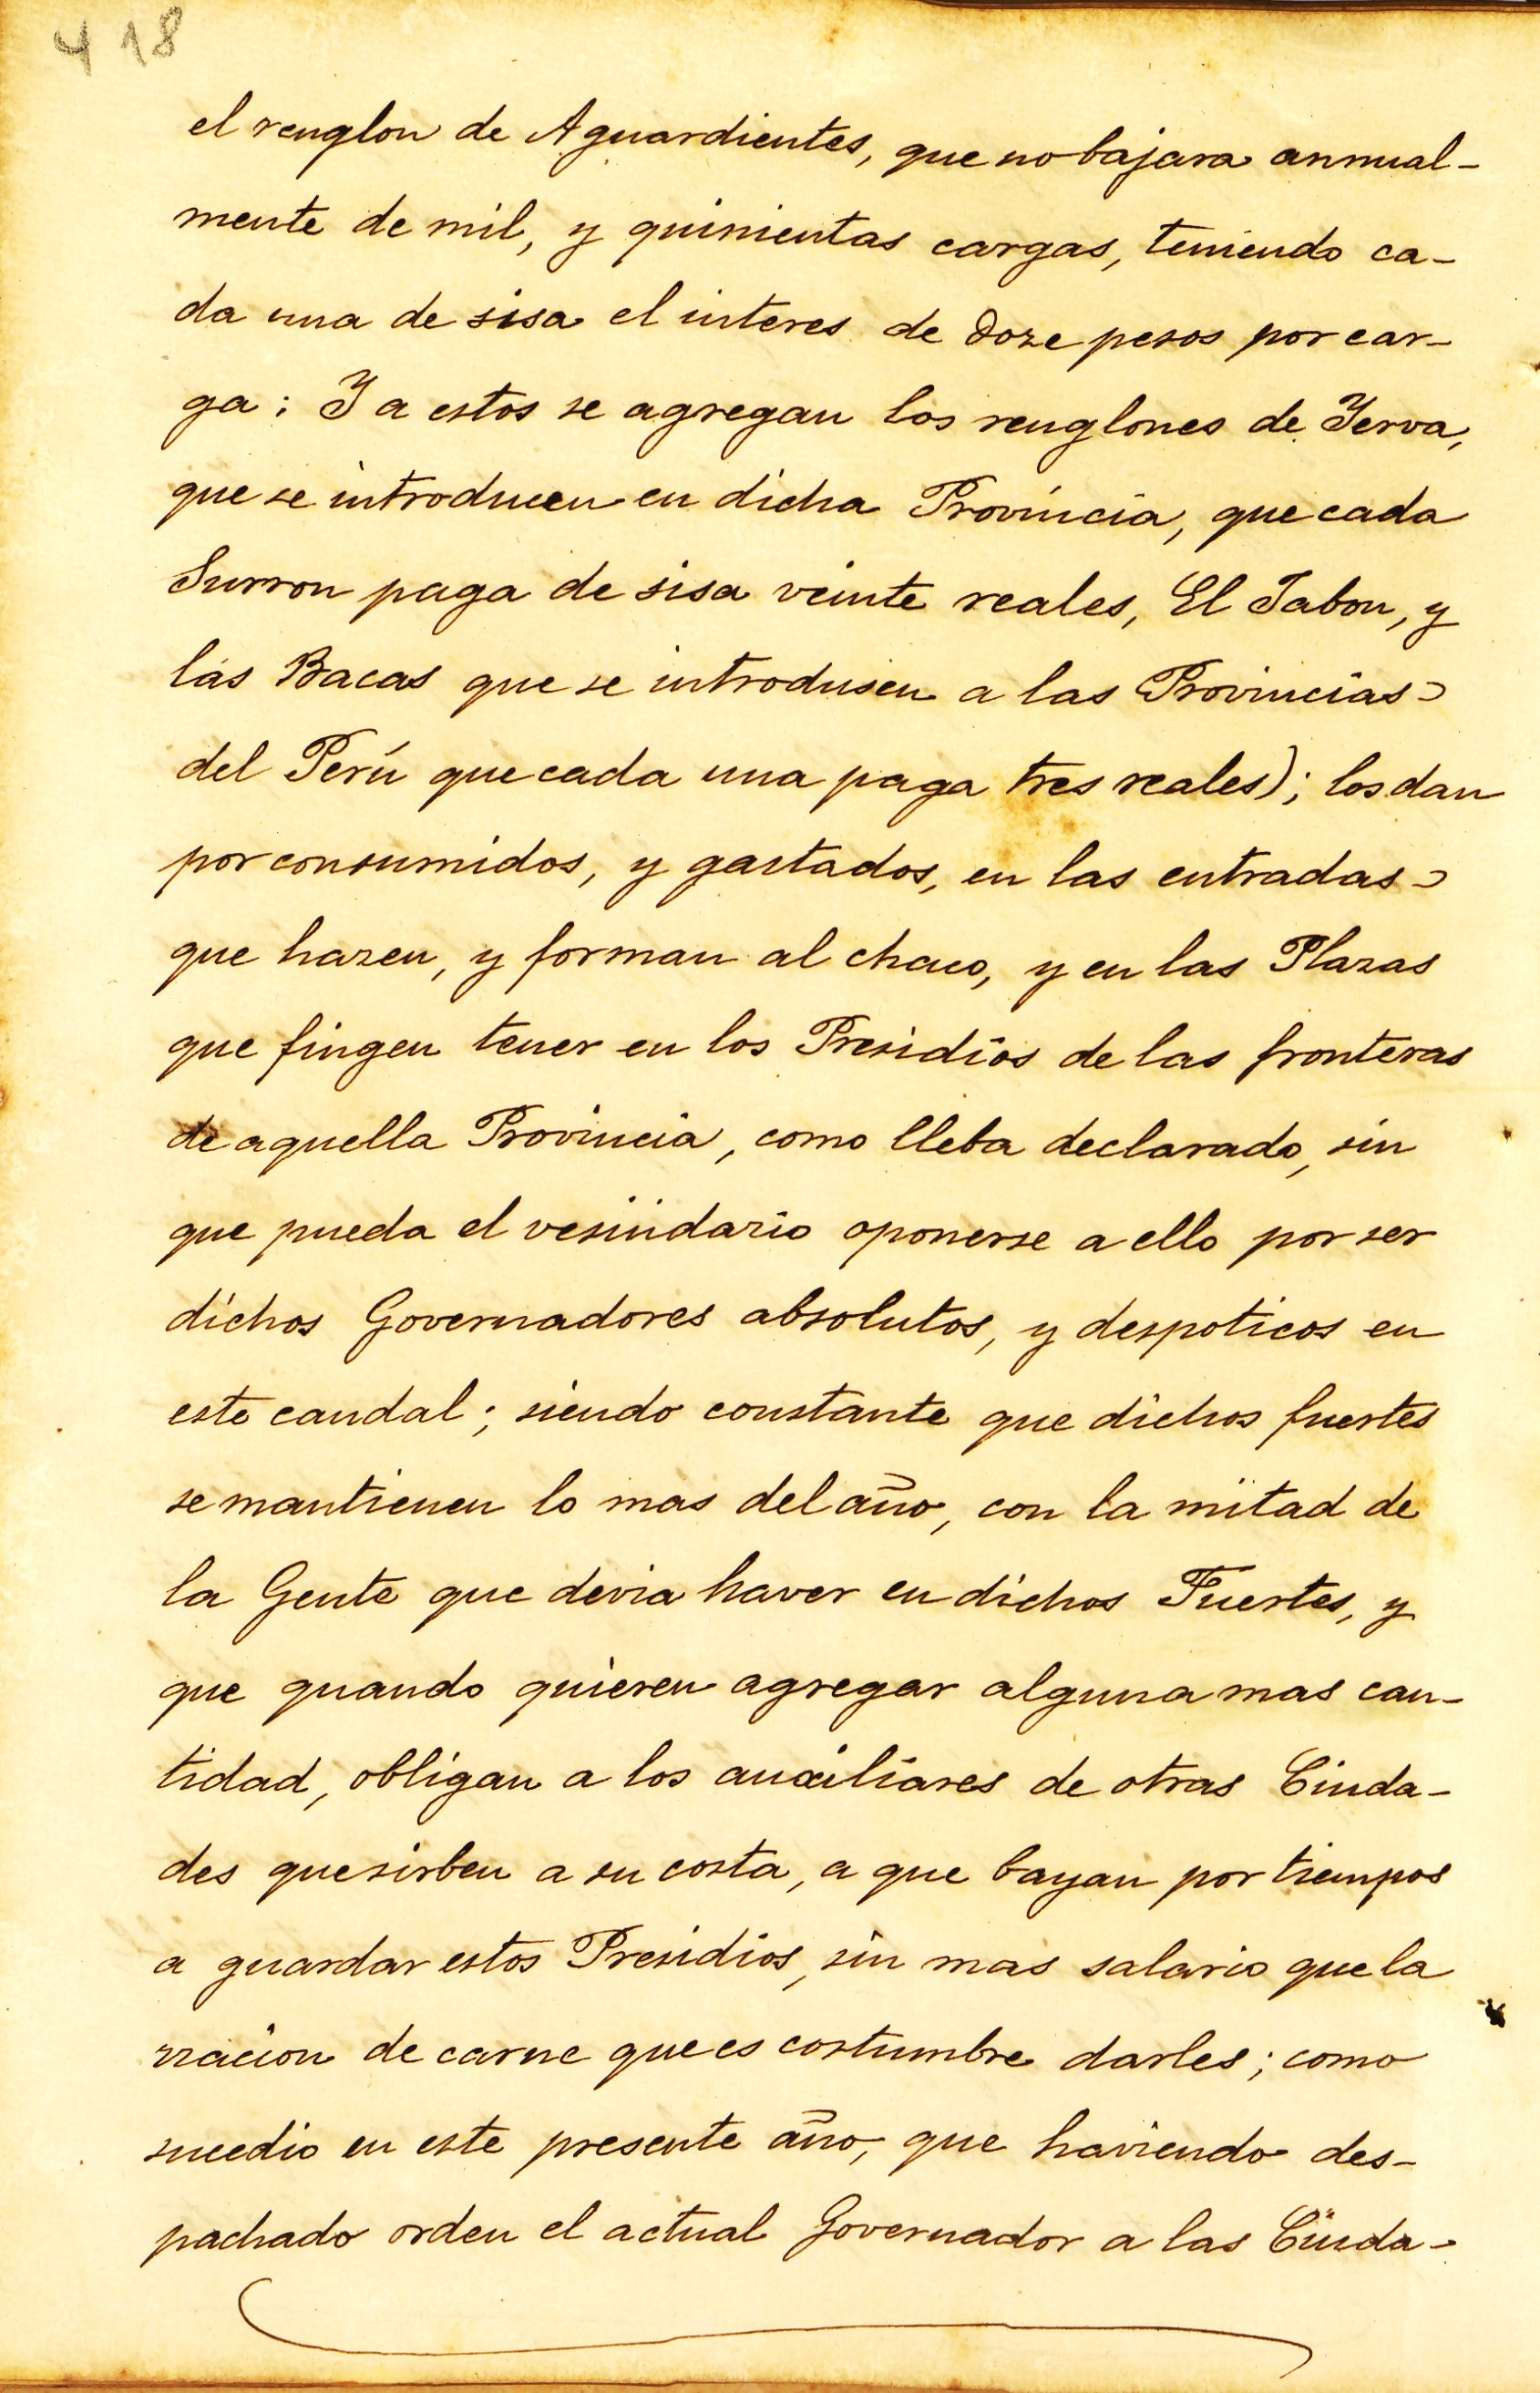 418
el renglon de Aguardientes, que no bajara annual-
mente de mil, y quinientas cargas, teniendo ca-
da una de sisa el interes de doze pesos por car-
ga; Y a estos se agregan los renglones de Yerva,
que se introducen en dicha Provincia, que cada
Surron paga de sisa veinte reales, El Jabon, y
las Bacas que se introdusen a las Provincias
del Perú que cada una paga tres reales); los dan
por consumidos, y gastados, en las entradas
que hazen, y forman al chaco, y en las Plazas
que fingen tener en los Presidios de las fronteras
de aquella Provincia, como lleba declarado, sin
que pueda el vesindario oponerse a ello por ser
dichos Governadores absolutos, y despoticos en
este caudal; siendo constante que dichos fuertes
se mantienen lo mas del año, con la mitad de
la Gente que devia haver en dichos Fuertes, y
que quando quieren agregar alguna mas can-
tidad, obligan a los auxiliares de otras Ciuda-
des que sirben a su costa, a que bayan por tiempos
a guardar estos Presidios, sin mas salario que la
rracion de carne que es costumbre darles; como
sucedio en este presente año, que haviendo des-
pachado orden el actual Governador a las Ciuda-